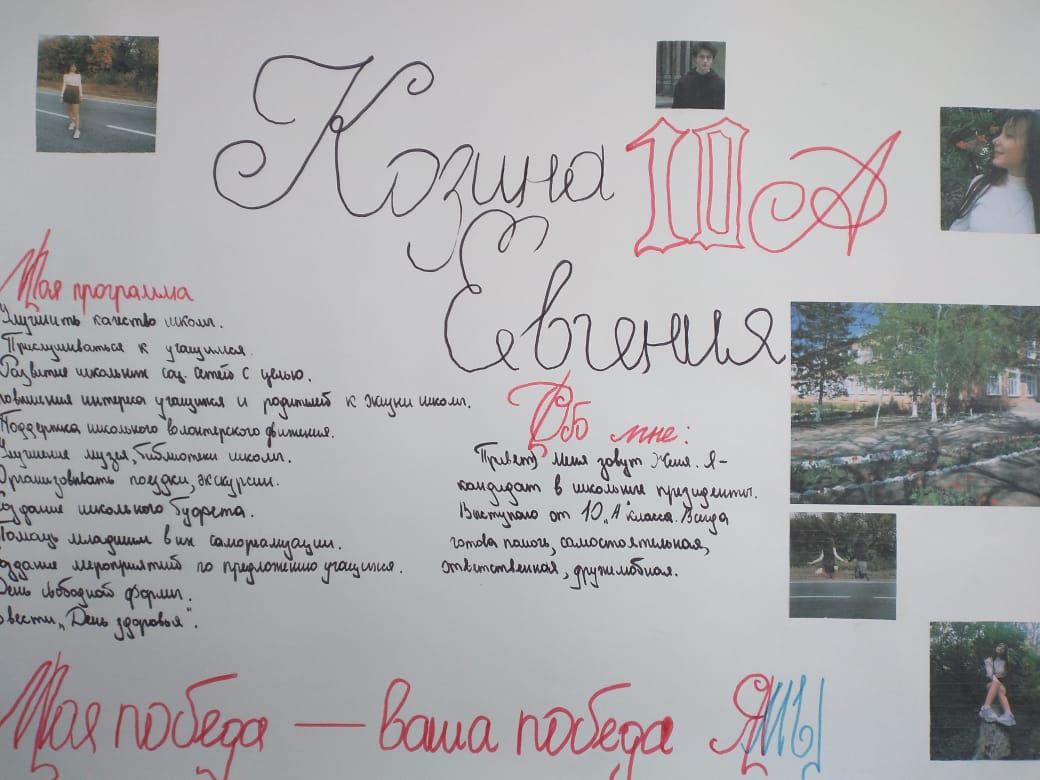 Козина 10 А
Евгения
Моя программа
Улучшить качество школы.
Прислушиваться к учащимся.
Развитие школьных соц. сетей с целью.
повышения интереса учащихся и родителей к жизни школы.
Поддержка школьного волонтерского движения.
Улучшение музея, библиотеки школы.
Организовывать поездки, экскурсии.
Создание школьного буфета.
Помощь младшим в их самореализации.
Создание мероприятий по предложению учащихся.
День свободной формы.
Провести „День здоровья".
Обо мне:
Привет, меня зовут Женя. Я-
кандидат в школьные президенты.
Выступаю от 10„А" класса. Всегда
готова помочь, самостоятельная,
ответственная, дружелюбная.
Моя победа — ваша победа ЯМЫ